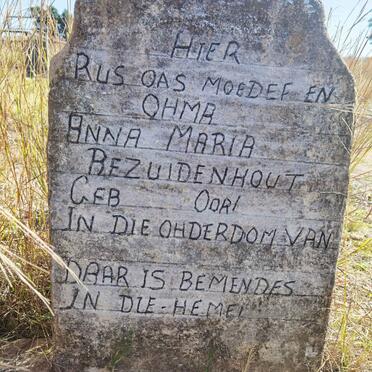 HIER
RUS OAS MOEDEF EN
OHMA
ANNA MARIA
BEZUIDENHOUT
GEB OORI
IN DIE OHDERDOM VAN
DAAR IS BEMENDES
IN DIE-HEMEL